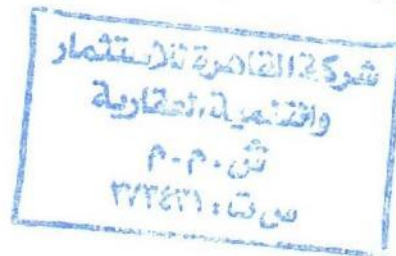 شركة القاهرة للاستثمار
والتنمية العقارية
ش.م.م
س ت: ٣٧٣٤٣١